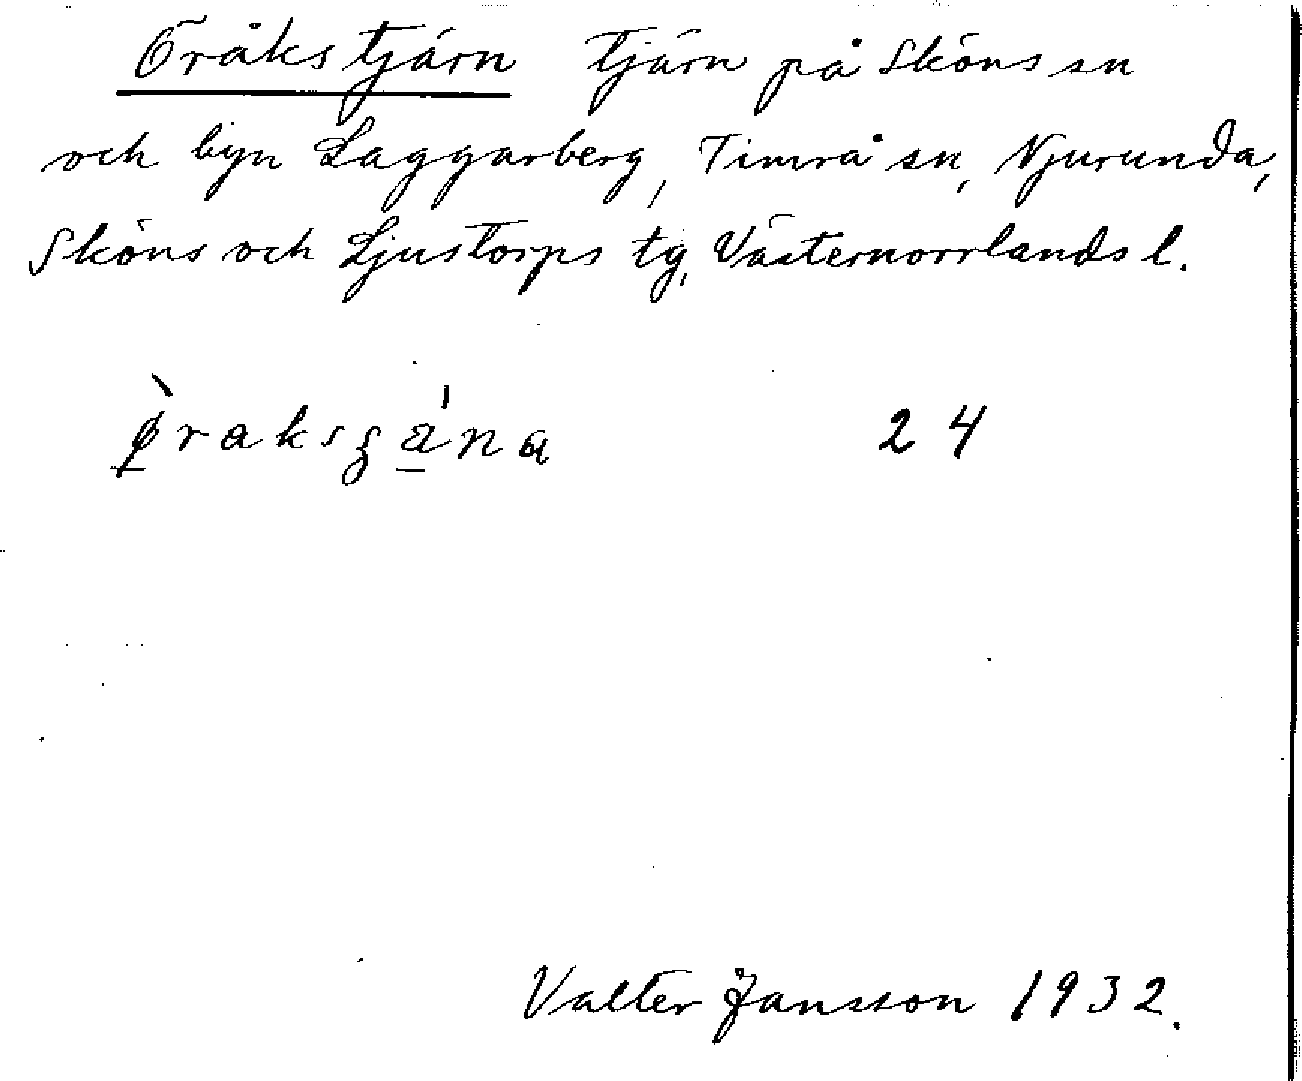 Öråkstjärn tjärn på Sköns sn
och byn Laggarberg, Timrå sn, Njurunda,
Sköns och Ljustorps tg, Västernorrlands l.
ø̱̀raksʒá̱na 24
Valter Jansson 1932.